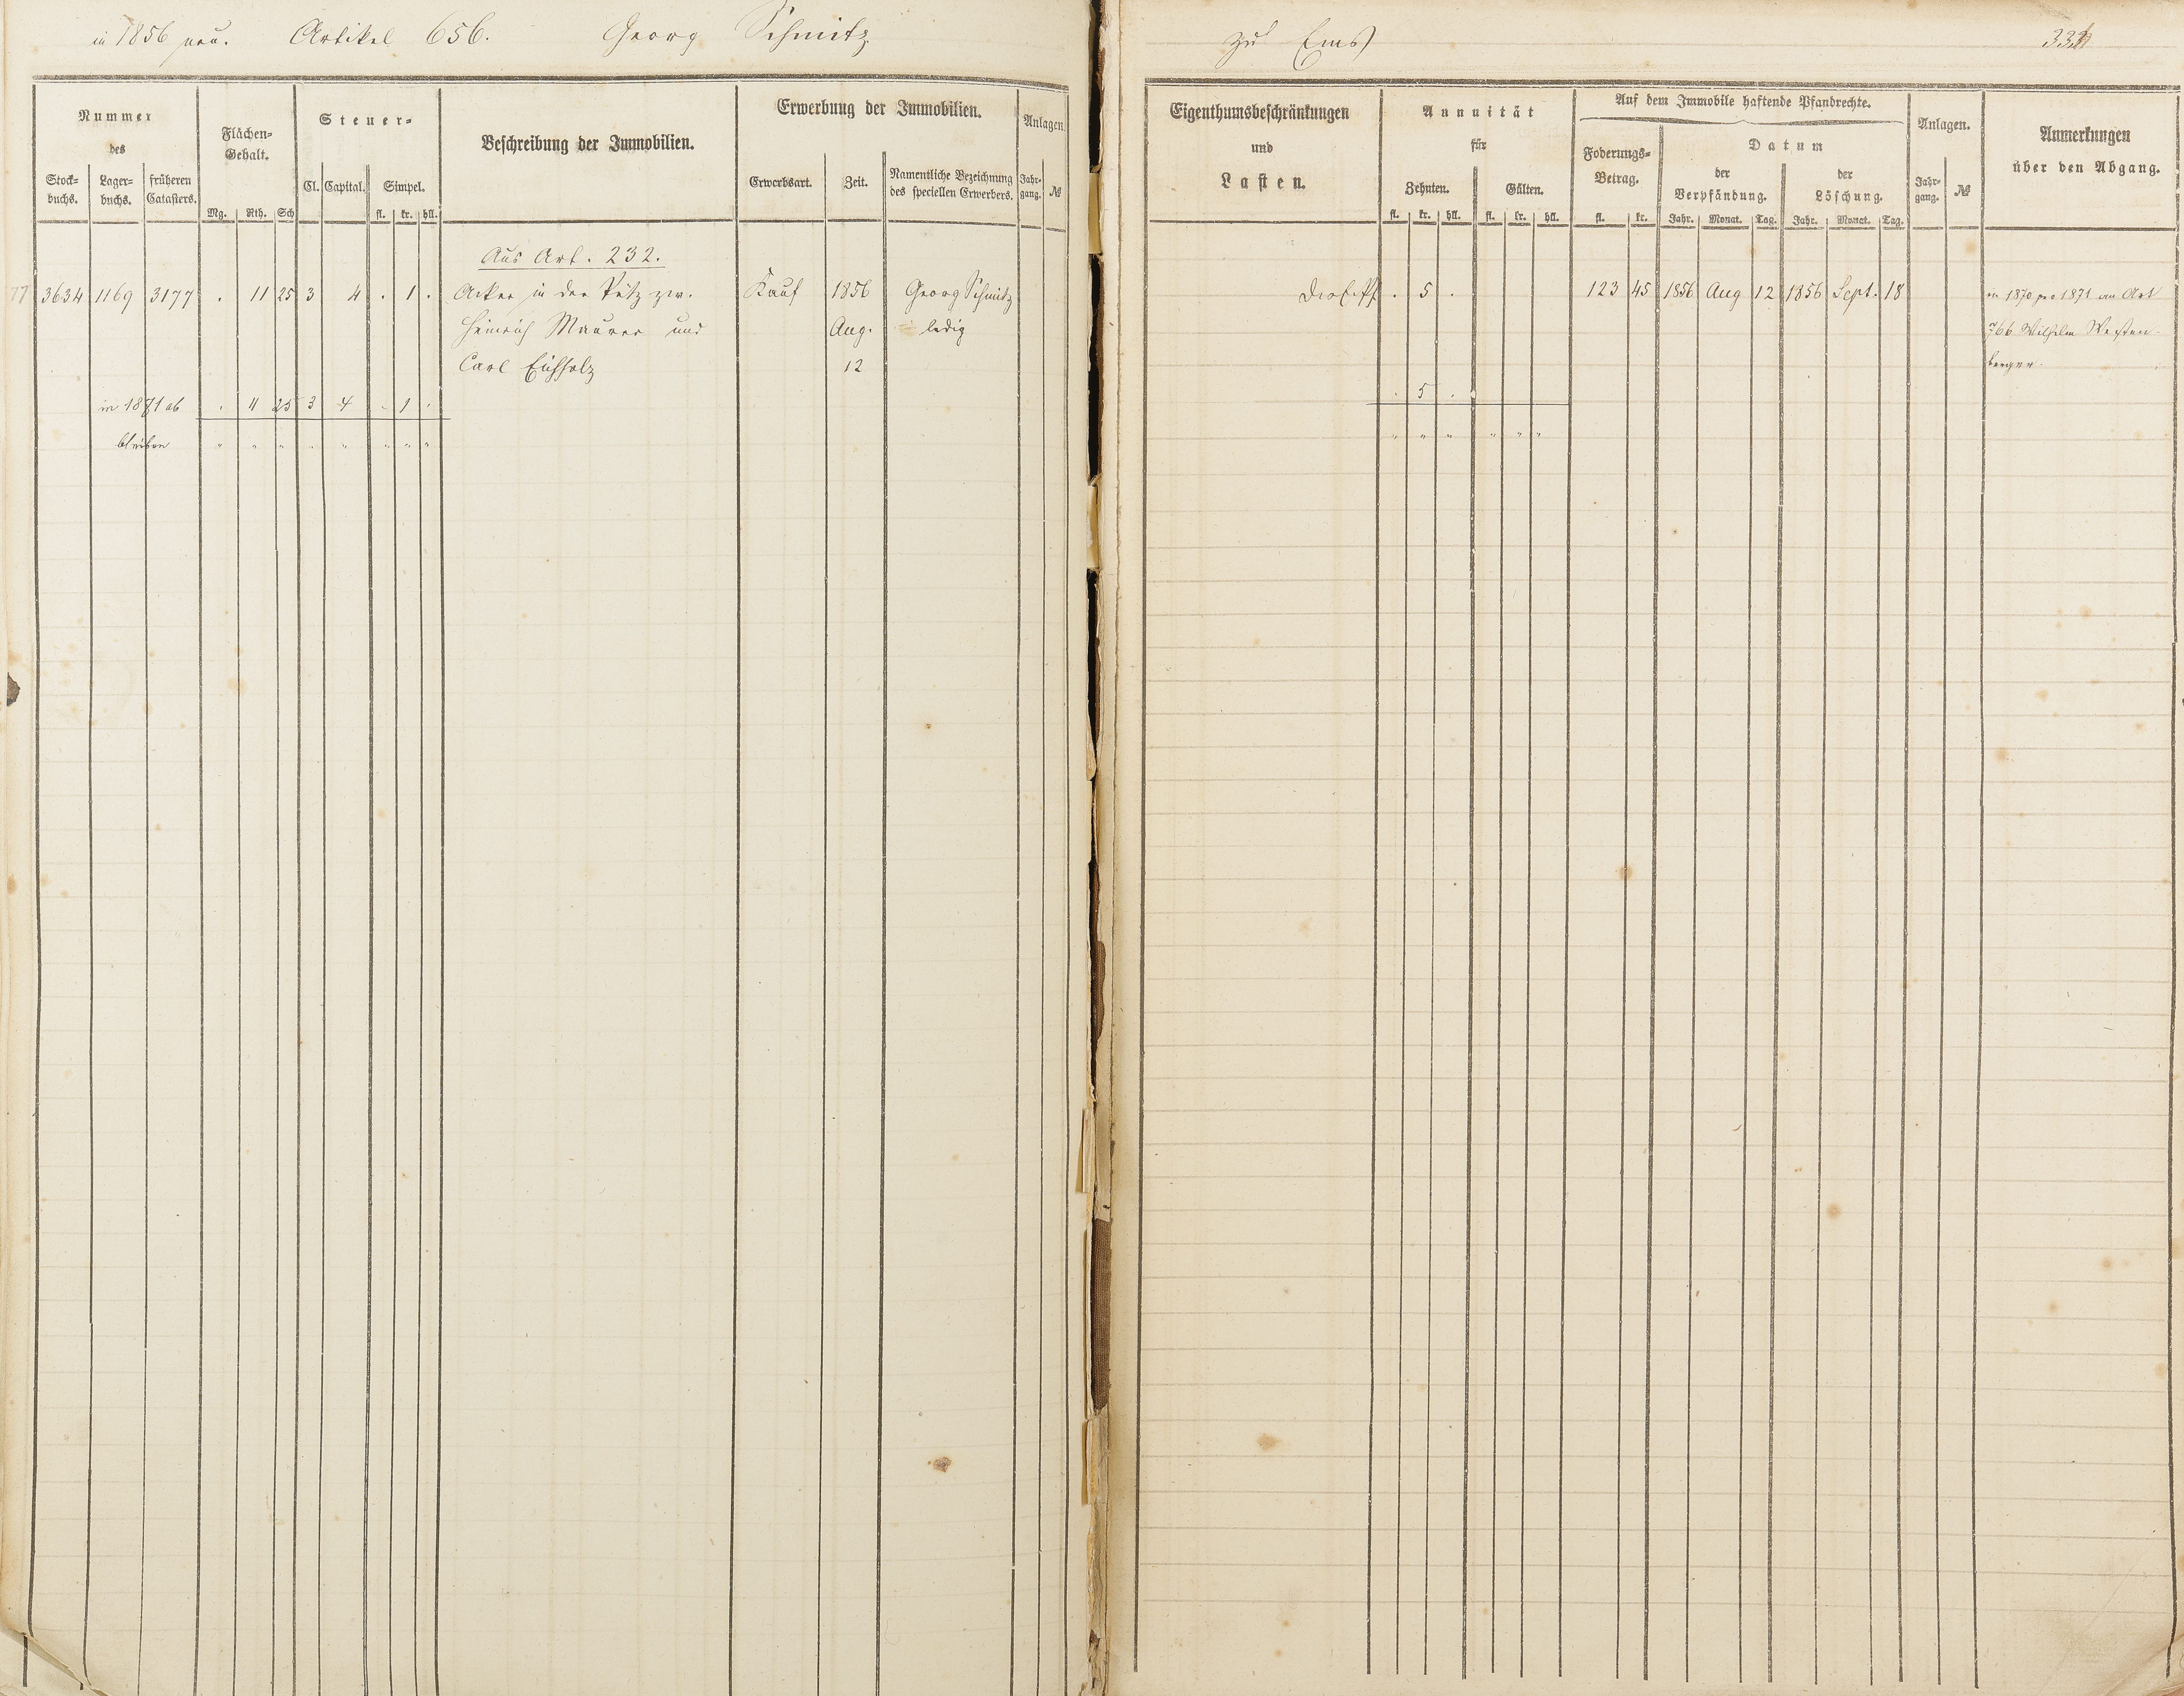 in 1856 neu. Artikel 656. Georg Schmitz
zu Ems
Nummer des
Stock-buchs. Lager-buchs. früheren Catasters.
Flächen-Gehalt.
Mg. Rth. Sch
Steuer-
Cl. Capital. Simpel.
fl. kr. hll.
Beschreibung der Immobilien.
Erwerbung der Immobilien.
Erwerbsart. Zeit. Namentliche Bezeichnung des speciellen Erwerbers.
Anlagen.
Jahr-gang. №
Eigenthumsbeschränkungen
und
Lasten.
Annuität
für
Zehnten. Gülten.
fl. kr. hll. fl. kr. hll.
Auf dem Immobile haftende Pfandrechte.
Foderungs-Betrag.
fl. kr.
Datum
der Verpfändung. der Löschung.
Jahr. Monat. Tag. Jahr. Monat. Tag.
Anlagen.
Jahr-gang. №
Anmerkungen
über den Abgang.
Aus Art. 232.
3634 1169 3177 . 11 25 3 4 . 1 . Acker in der Pütz zw. Kauf 1856 Georg Schmitz . 5 . 123 45 1856 Aug 12 1856 Sept. 18 in 1870 pro 1871 an Art
Heinrich Maurer und Aug. ledig 766 Wilhelm Westen-
Carl Eichholz 12 berger.
in 1871 ab . 11 25 3 4 . 1 . . 5 .
bleiben " " " " " " " " " " " " " "